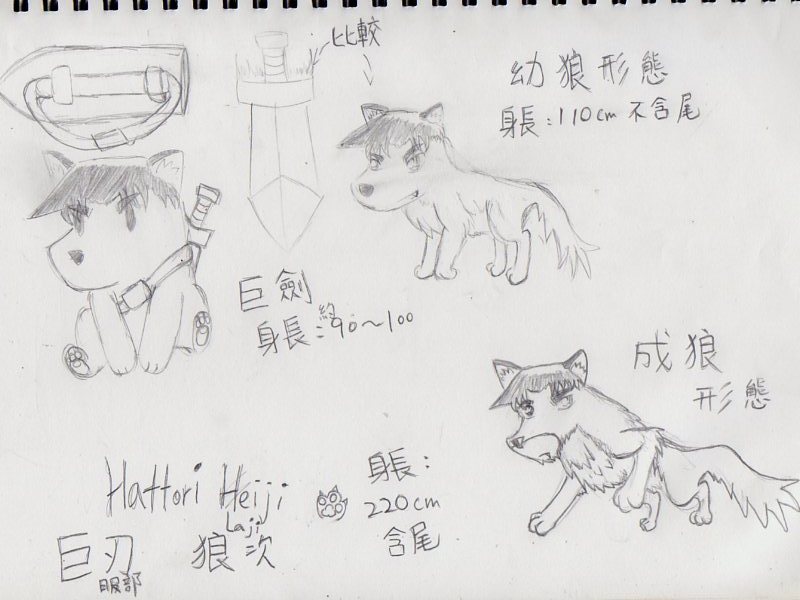 比較
幼狼形態
身長：110cm 不含尾
巨劍
身長：約90～100
成狼
形態
身長：
220cm
含尾
Hattori Heiji
Laji
巨刃 狼次
服部